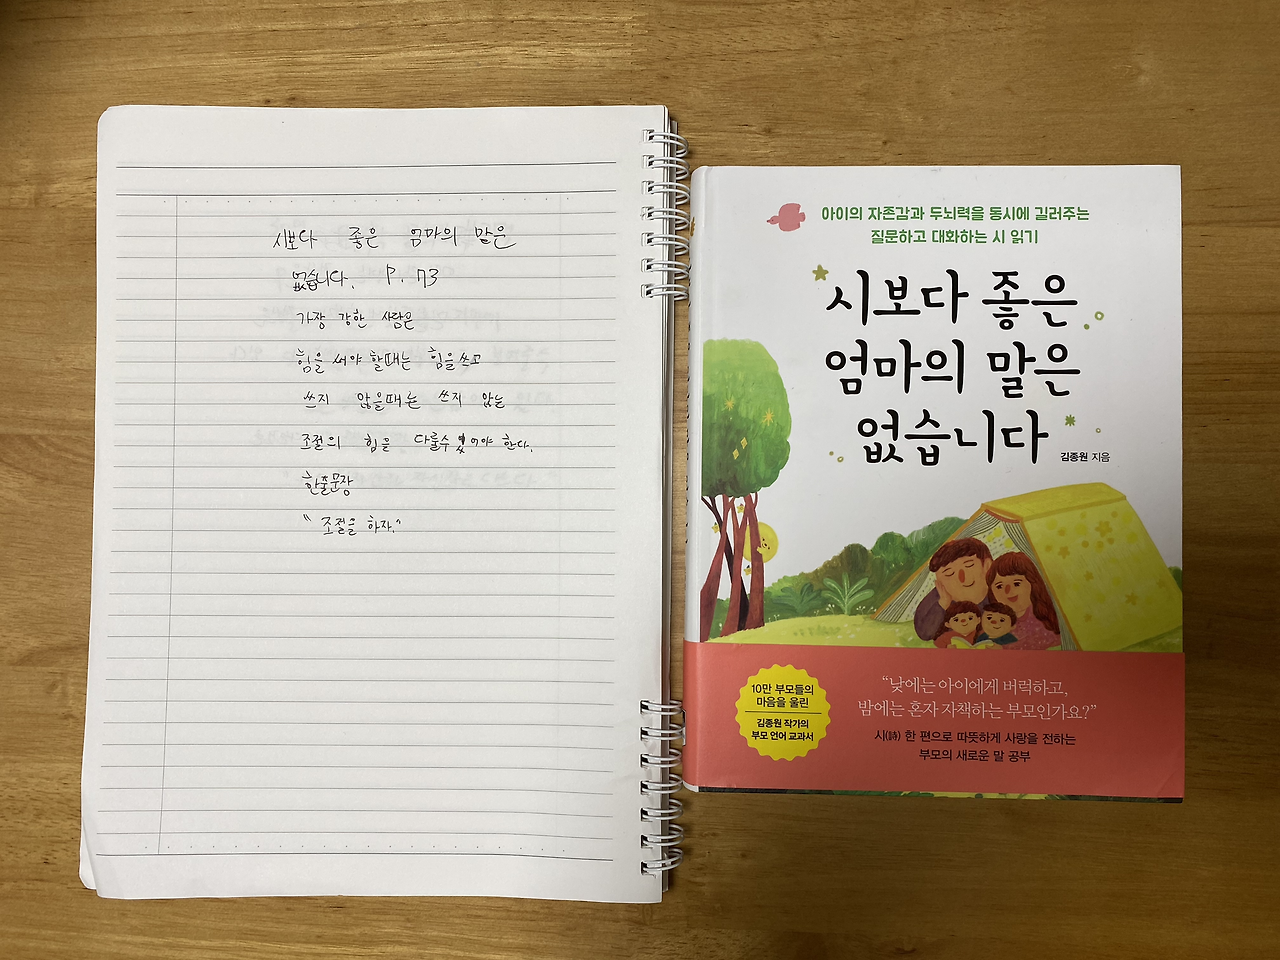 시보다 좋은 엄마의 말은
없습니다. P. 73
가장 강한 사람은
힘을 써야 할때는 힘을쓰고
쓰지 않을때는 쓰지 않는
조절의 힘을 다룰수있어야 한다.
한줄문장
"조절을 하자."
아이의 자존감과 두뇌력을 동시에 길러주는
질문하고 대화하는 시 읽기
시보다 좋은
엄마의 말은
없습니다
김종원 지음
10만 부모들의
마음을 울린
김종원 작가의
부모 언어 교과서
“낮에는 아이에게 버럭하고,
밤에는 혼자 자책하는 부모인가요?”
시(詩) 한 편으로 따뜻하게 사랑을 전하는
부모의 새로운 말 공부